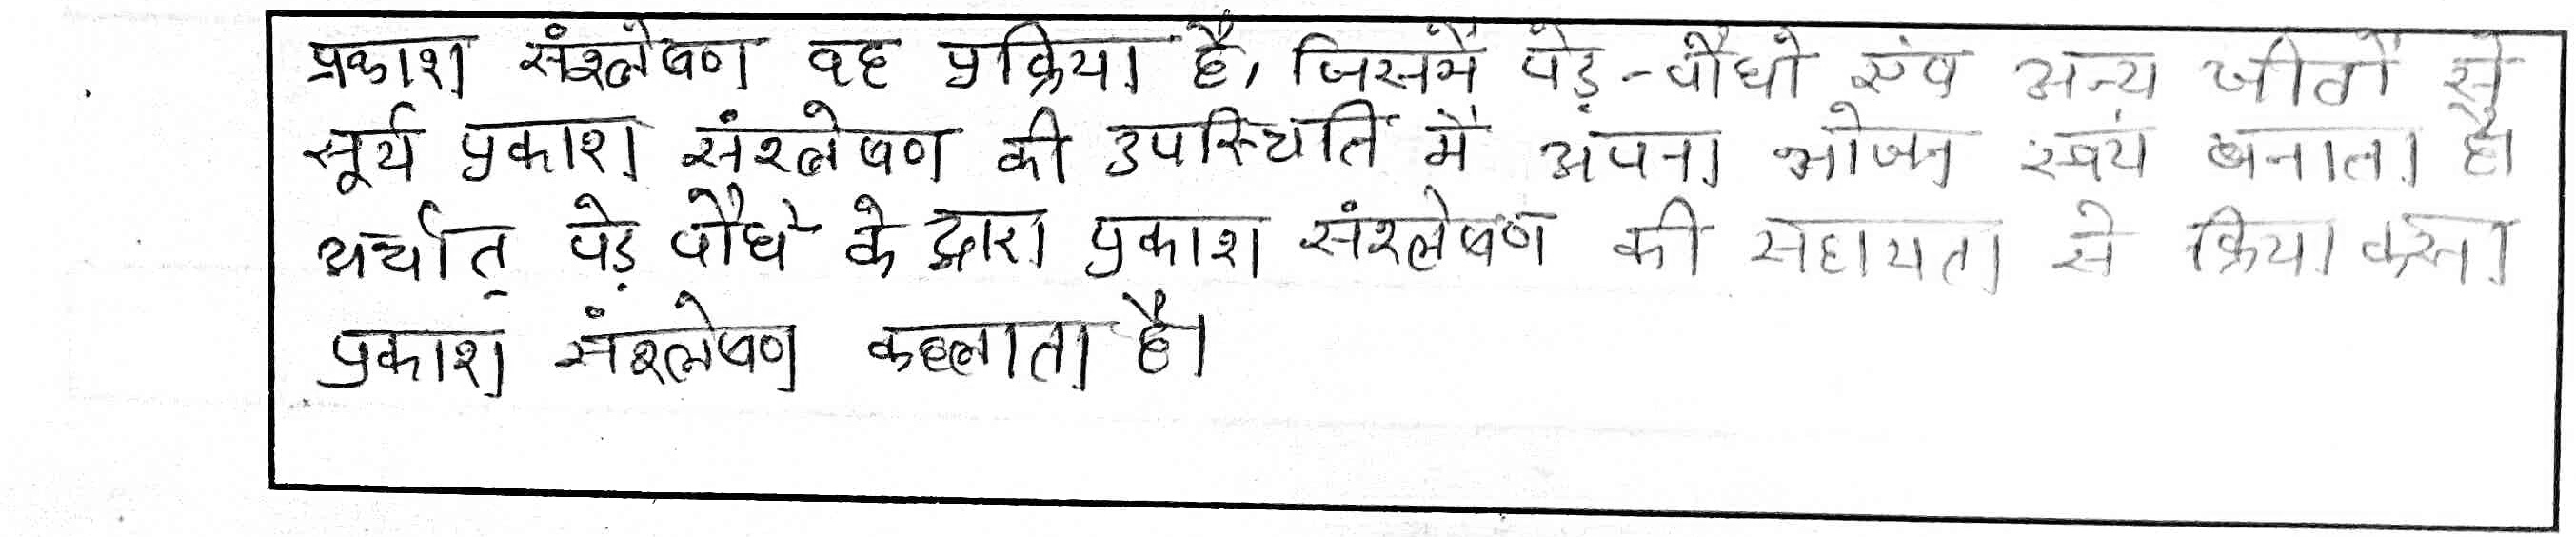 प्रकाश संश्लेषण वह प्रक्रिया है, जिसमें पेड़-पौधो एंव अन्य जीवों से
सूर्य प्रकाश संश्लेषण की उपस्थिति में अपना भोजन स्वयं बनाता है।
अर्थात् पेड़ पौधे के द्वारा प्रकाश संश्लेषण की सहायता से क्रिया करना
प्रकाश संश्लेषण कहलाता है।